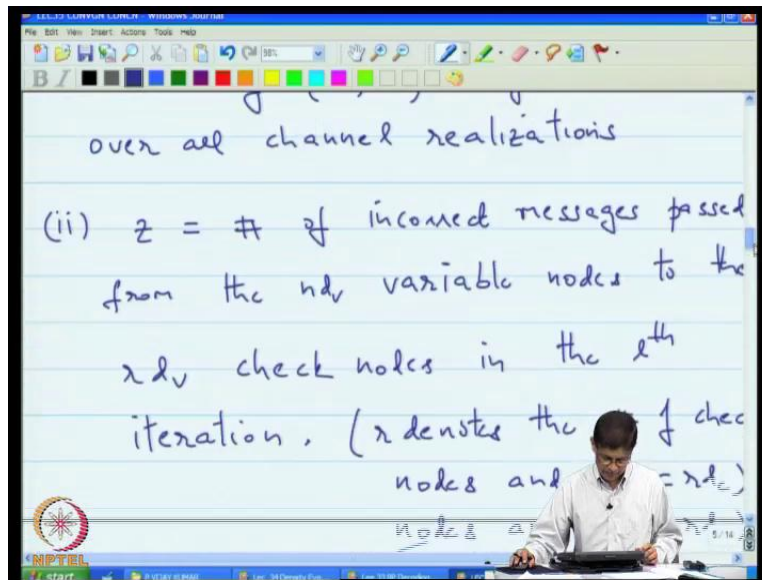 LEC 35 CONVGN CONCN - Windows Journal
File Edit View Insert Actions Tools Help
98%
B I
over all channel realizations
(ii) z = # of incorrect messages passed
from the ndv variable nodes to the
rdv check nodes in the lth
iteration. (r denotes the # of chec
nodes and = rdc)
nodes
5/14
NPTEL
start
P VIJAY KUMAR